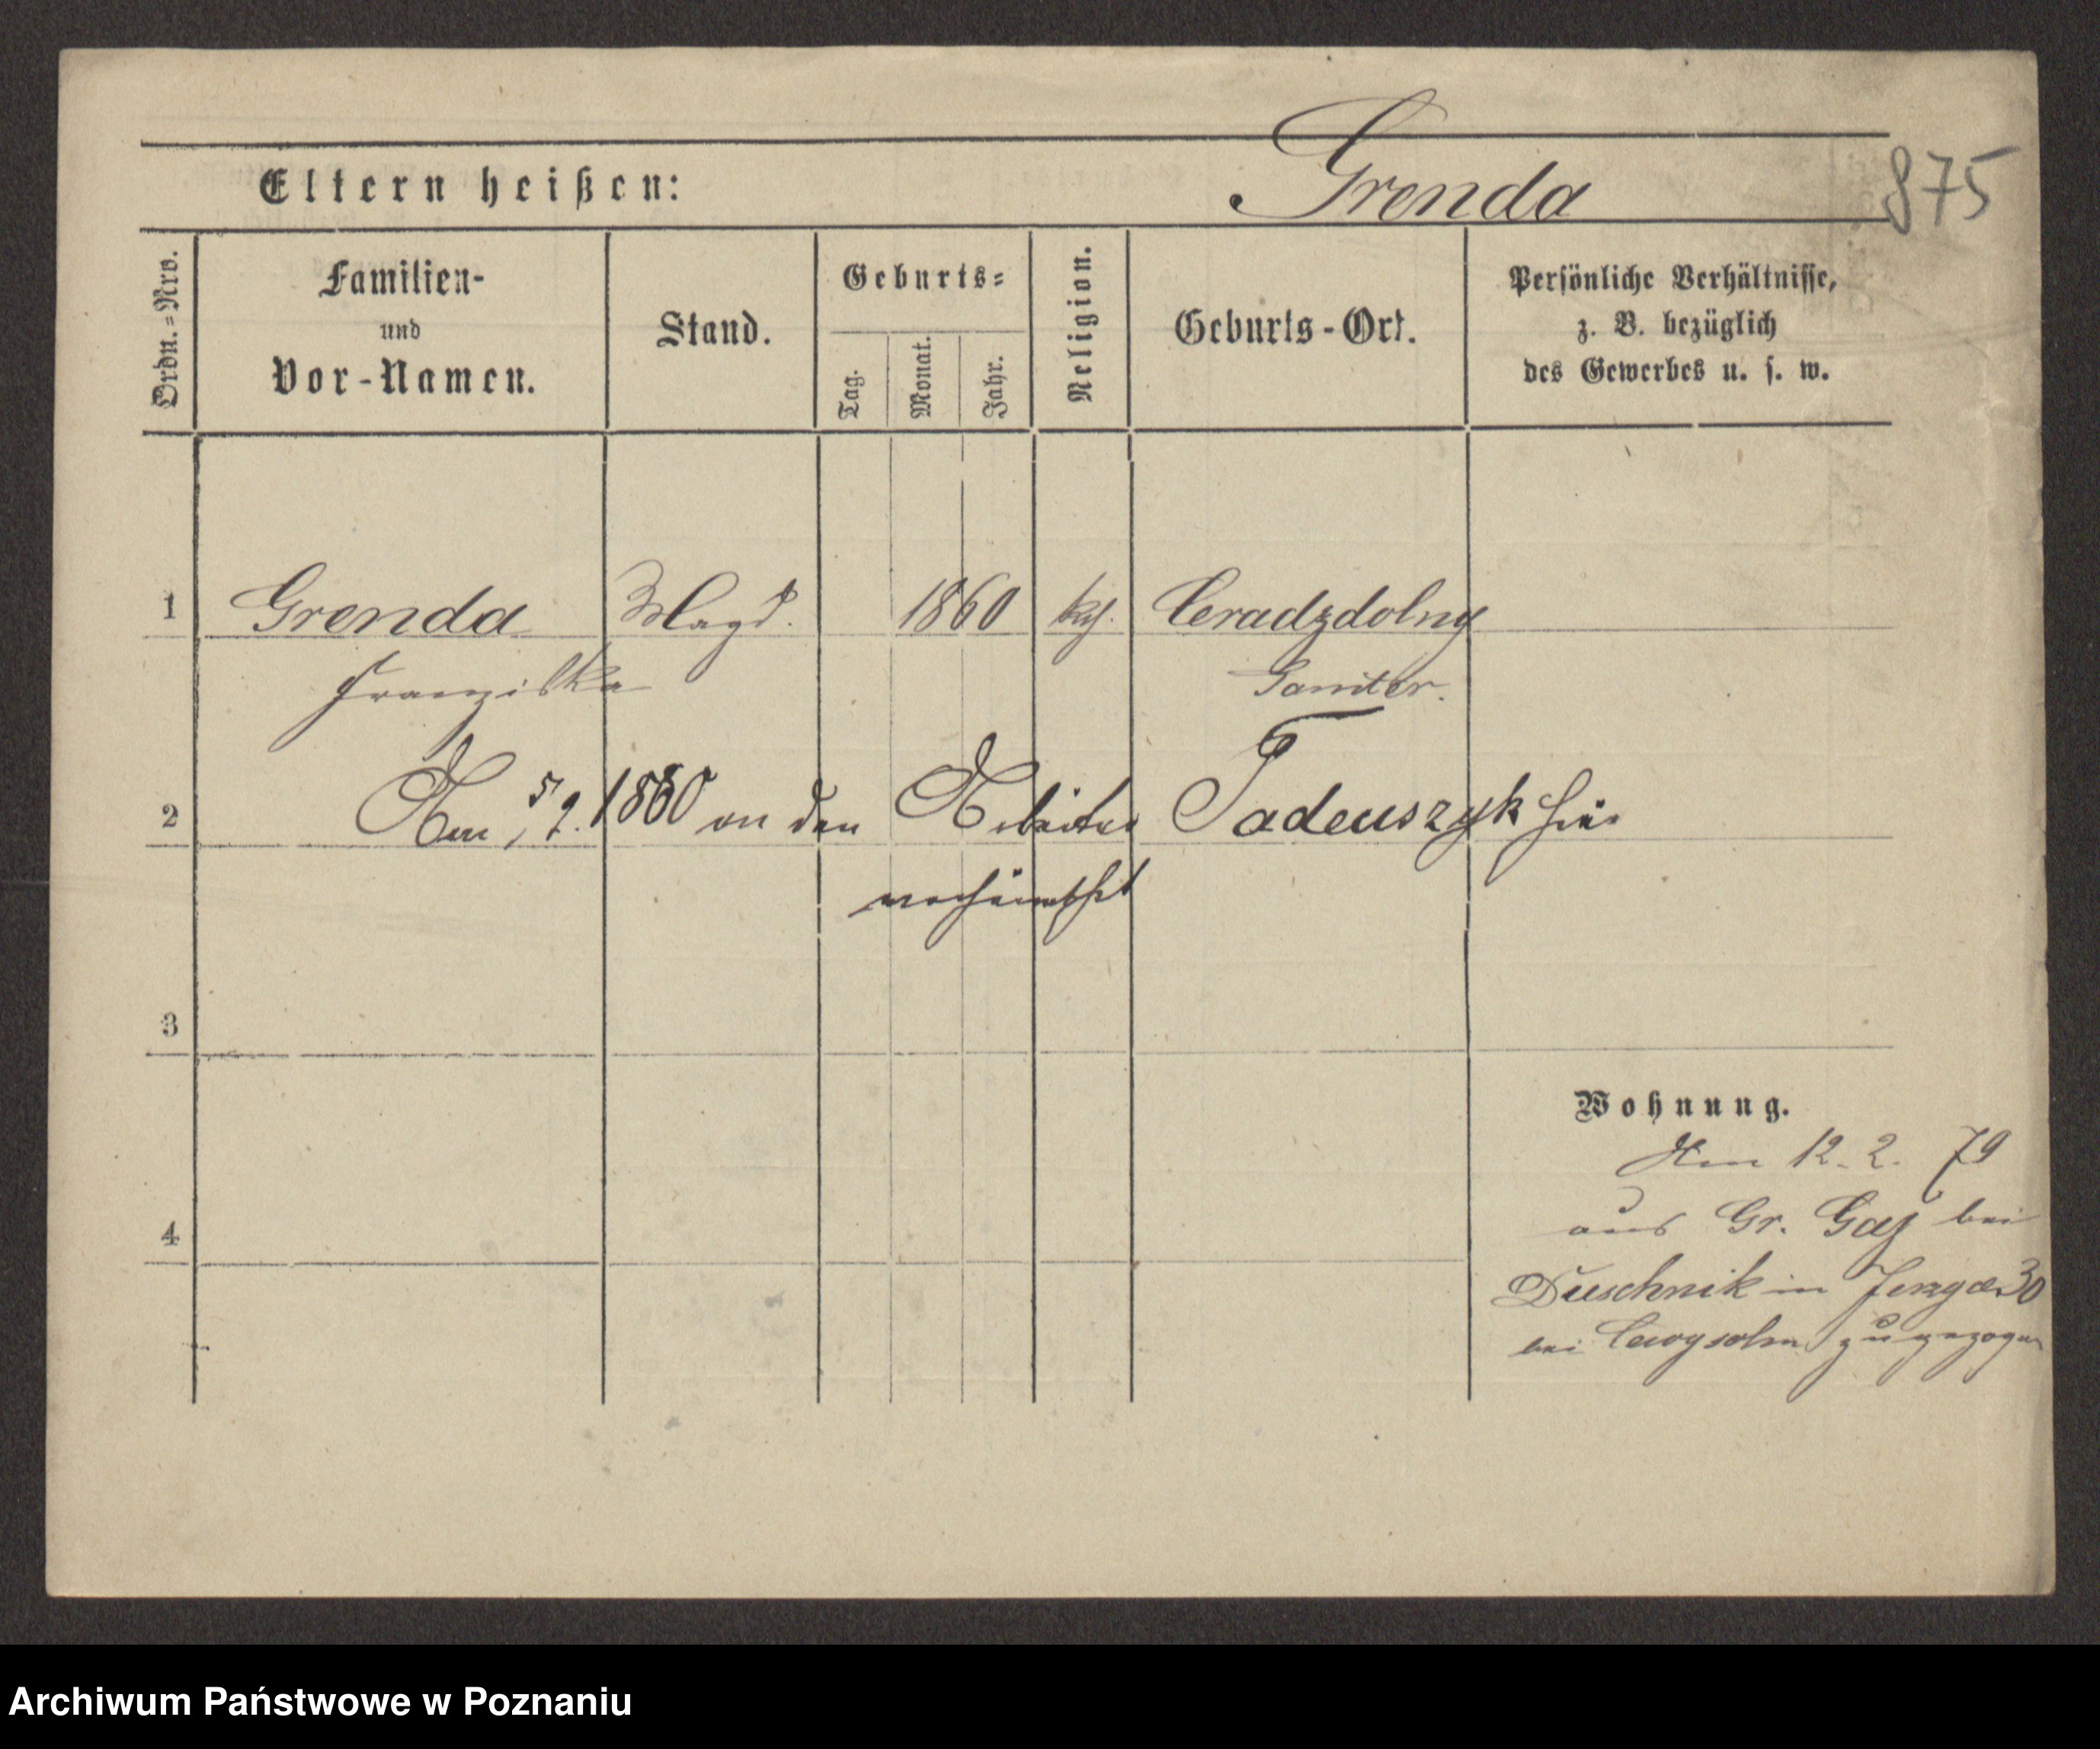 Grenda
875
Eltern heißen:
Ordn.=Nro.
Familien-
und
Vor-Namen.
Stand.
Geburts=
Tag.
Monat.
Jahr.
Religion.
Geburts-Ort.
Persönliche Verhältnisse,
z. B. bezüglich
des Gewerbes u. s. w.
1 Grenda Magd. 1860 kth. Ceradzdolny
Franziska Samter.
2 Am 1880 an den Arbeiter Tadeuszyk hier
verheirathet
3
Wohnung.
Am 12. 2. 79
aus Gr. Gay bei
4
Duschnik in 30
bei zugezogen
Archiwum Państwowe w Poznaniu